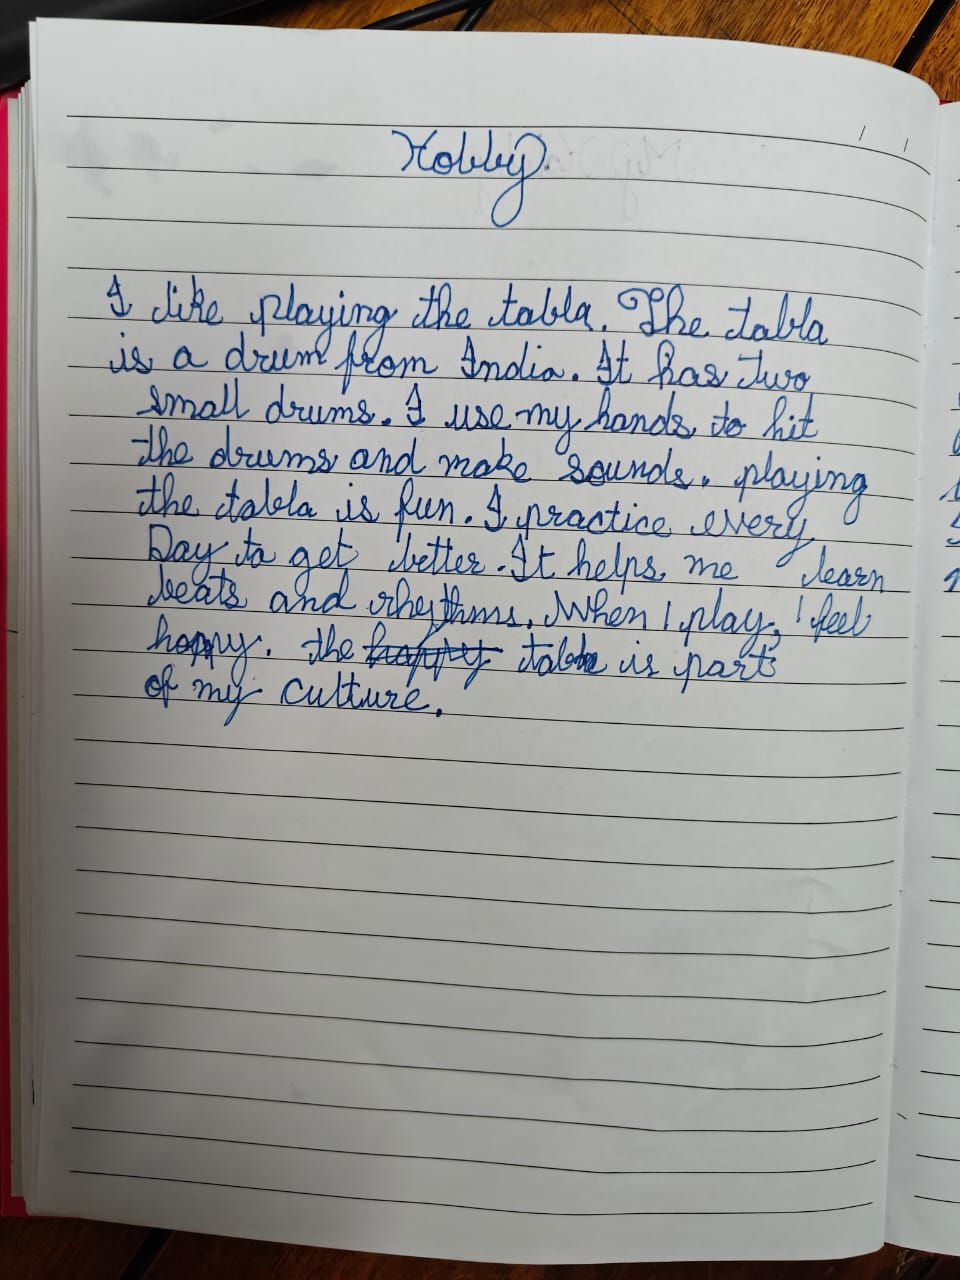 Hobby.
I like playing the tabla. The tabla
is a drum from India. It has two
small drums. I use my hands to hit
the drums and make sounds. playing
the tabla is fun. I practice every
Day to get better. It helps me learn
beats and rhythms. When I play, I feel
happy. the happy tabla is part
of my culture.